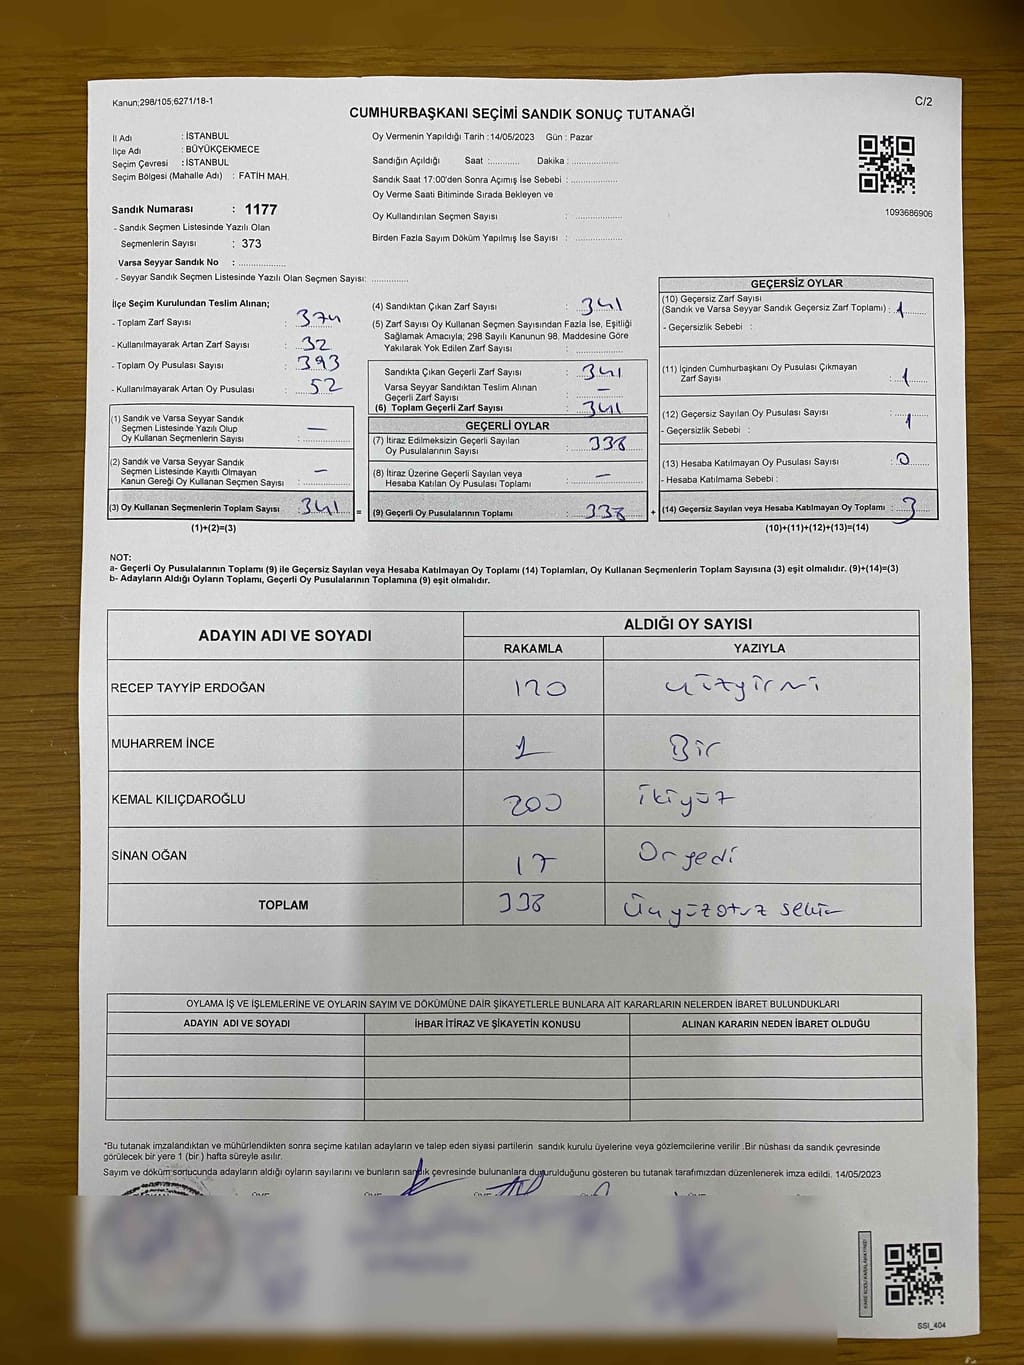 Kanun;298/105;6271/18-1
C/2
CUMHURBAŞKANI SEÇİMİ SANDIK SONUÇ TUTANAĞI
İl Adı : İSTANBUL
İlçe Adı : BÜYÜKÇEKMECE
Seçim Çevresi : İSTANBUL
Seçim Bölgesi (Mahalle Adı) : FATİH MAH.
Sandık Numarası : 1177
- Sandık Seçmen Listesinde Yazılı Olan
Seçmenlerin Sayısı : 373
Varsa Seyyar Sandık No : ................
- Seyyar Sandık Seçmen Listesinde Yazılı Olan Seçmen Sayısı: ............
Oy Vermenin Yapıldığı Tarih : 14/05/2023 Gün : Pazar
Sandığın Açıldığı Saat :.......... Dakika : ................
Sandık Saat 17:00'den Sonra Açımış İse Sebebi : ................
Oy Verme Saati Bitiminde Sırada Bekleyen ve
Oy Kullandırılan Seçmen Sayısı : ................
Birden Fazla Sayım Döküm Yapılmış İse Sayısı : ................
1093686906
İlçe Seçim Kurulundan Teslim Alınan;
- Toplam Zarf Sayısı : 374
- Kullanılmayarak Artan Zarf Sayısı : 32
- Toplam Oy Pusulası Sayısı : 393
- Kullanılmayarak Artan Oy Pusulası : 52
(1) Sandık ve Varsa Seyyar Sandık
Seçmen Listesinde Yazılı Olup
Oy Kullanan Seçmenlerin Sayısı : —
(2) Sandık ve Varsa Seyyar Sandık
Seçmen Listesinde Kayıtlı Olmayan
Kanun Gereği Oy Kullanan Seçmen Sayısı : —
(3) Oy Kullanan Seçmenlerin Toplam Sayısı : 341 =
(1)+(2)=(3)
(4) Sandıktan Çıkan Zarf Sayısı : 341
(5) Zarf Sayısı Oy Kullanan Seçmen Sayısından Fazla İse, Eşitliği
Sağlamak Amacıyla; 298 Sayılı Kanunun 98. Maddesine Göre
Yakılarak Yok Edilen Zarf Sayısı : ................
Sandıkta Çıkan Geçerli Zarf Sayısı : 341
Varsa Seyyar Sandıktan Teslim Alınan
Geçerli Zarf Sayısı : —
(6) Toplam Geçerli Zarf Sayısı : 341
GEÇERLİ OYLAR
(7) İtiraz Edilmeksizin Geçerli Sayılan
Oy Pusulalarının Sayısı : 338
(8) İtiraz Üzerine Geçerli Sayılan veya
Hesaba Katılan Oy Pusulası Toplamı : —
(9) Geçerli Oy Pusulalarının Toplamı : 338 +
GEÇERSİZ OYLAR
(10) Geçersiz Zarf Sayısı
(Sandık ve Varsa Seyyar Sandık Geçersiz Zarf Toplamı) : 1
- Geçersizlik Sebebi :
(11) İçinden Cumhurbaşkanı Oy Pusulası Çıkmayan
Zarf Sayısı : 1
(12) Geçersiz Sayılan Oy Pusulası Sayısı : 1
- Geçersizlik Sebebi :
(13) Hesaba Katılmayan Oy Pusulası Sayısı : 0
- Hesaba Katılmama Sebebi :
(14) Geçersiz Sayılan veya Hesaba Katılmayan Oy Toplamı : 3
(10)+(11)+(12)+(13)=(14)
NOT:
a- Geçerli Oy Pusulalarının Toplamı (9) ile Geçersiz Sayılan veya Hesaba Katılmayan Oy Toplamı (14) Toplamları, Oy Kullanan Seçmenlerin Toplam Sayısına (3) eşit olmalıdır. (9)+(14)=(3)
b- Adayların Aldığı Oyların Toplamı, Geçerli Oy Pusulalarının Toplamına (9) eşit olmalıdır.
ADAYIN ADI VE SOYADI
ALDIĞI OY SAYISI
RAKAMLA YAZIYLA
RECEP TAYYİP ERDOĞAN 120 yüzyirmi
MUHARREM İNCE 1 Bir
KEMAL KILIÇDAROĞLU 200 ikiyüz
SİNAN OĞAN 17 Onyedi
TOPLAM 338 Üçyüzotuz sekiz
OYLAMA İŞ VE İŞLEMLERİNE VE OYLARIN SAYIM VE DÖKÜMÜNE DAİR ŞİKAYETLERLE BUNLARA AİT KARARLARIN NELERDEN İBARET BULUNDUKLARI
ADAYIN ADI VE SOYADI İHBAR İTİRAZ VE ŞİKAYETİN KONUSU ALINAN KARARIN NEDEN İBARET OLDUĞU
*Bu tutanak imzalandıktan ve mühürlendikten sonra seçime katılan adayların ve talep eden siyasi partilerin sandık kurulu üyelerine veya gözlemcilerine verilir .Bir nüshası da sandık çevresinde
görülecek bir yere 1 (bir ) hafta süreyle asılır.
Sayım ve döküm sonucunda adayların aldığı oyların sayılarını ve bunların sandık çevresinde bulunanlara duyurulduğunu gösteren bu tutanak tarafımızdan düzenlenerek imza edildi. 14/05/2023
SSI_404